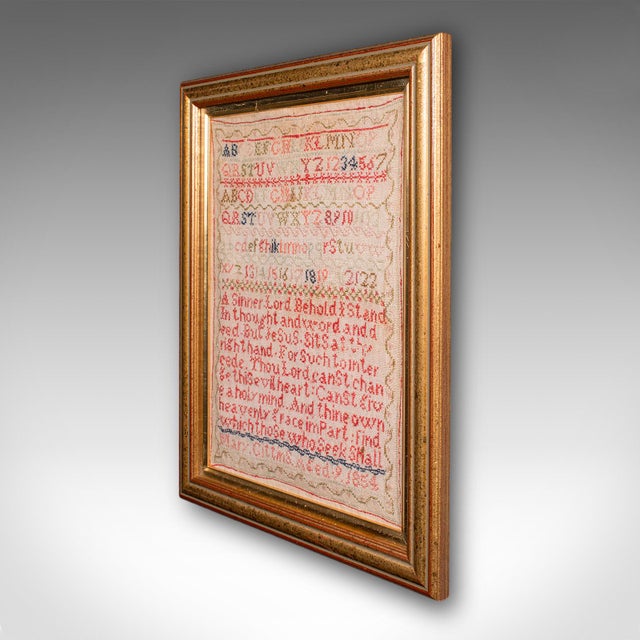 AB EFGH KLMNOP
QRSTUV YZ1234567
ABCD G OP
QRST WXYZ8910
cdefghiklmnopqrstu
18 19 21 22
A Sinner Lord Behold I Stand
In thought and word and d
eed. But JeSuS. SitS at
right hand. For Such to inter
cede. Thou Lord canSt chan
ge thiS evil heart: CanSt giv
e a holy mind. And thine own
heavenly grace impart: find
which thoSe who Seek Shall
Aged 9 1884